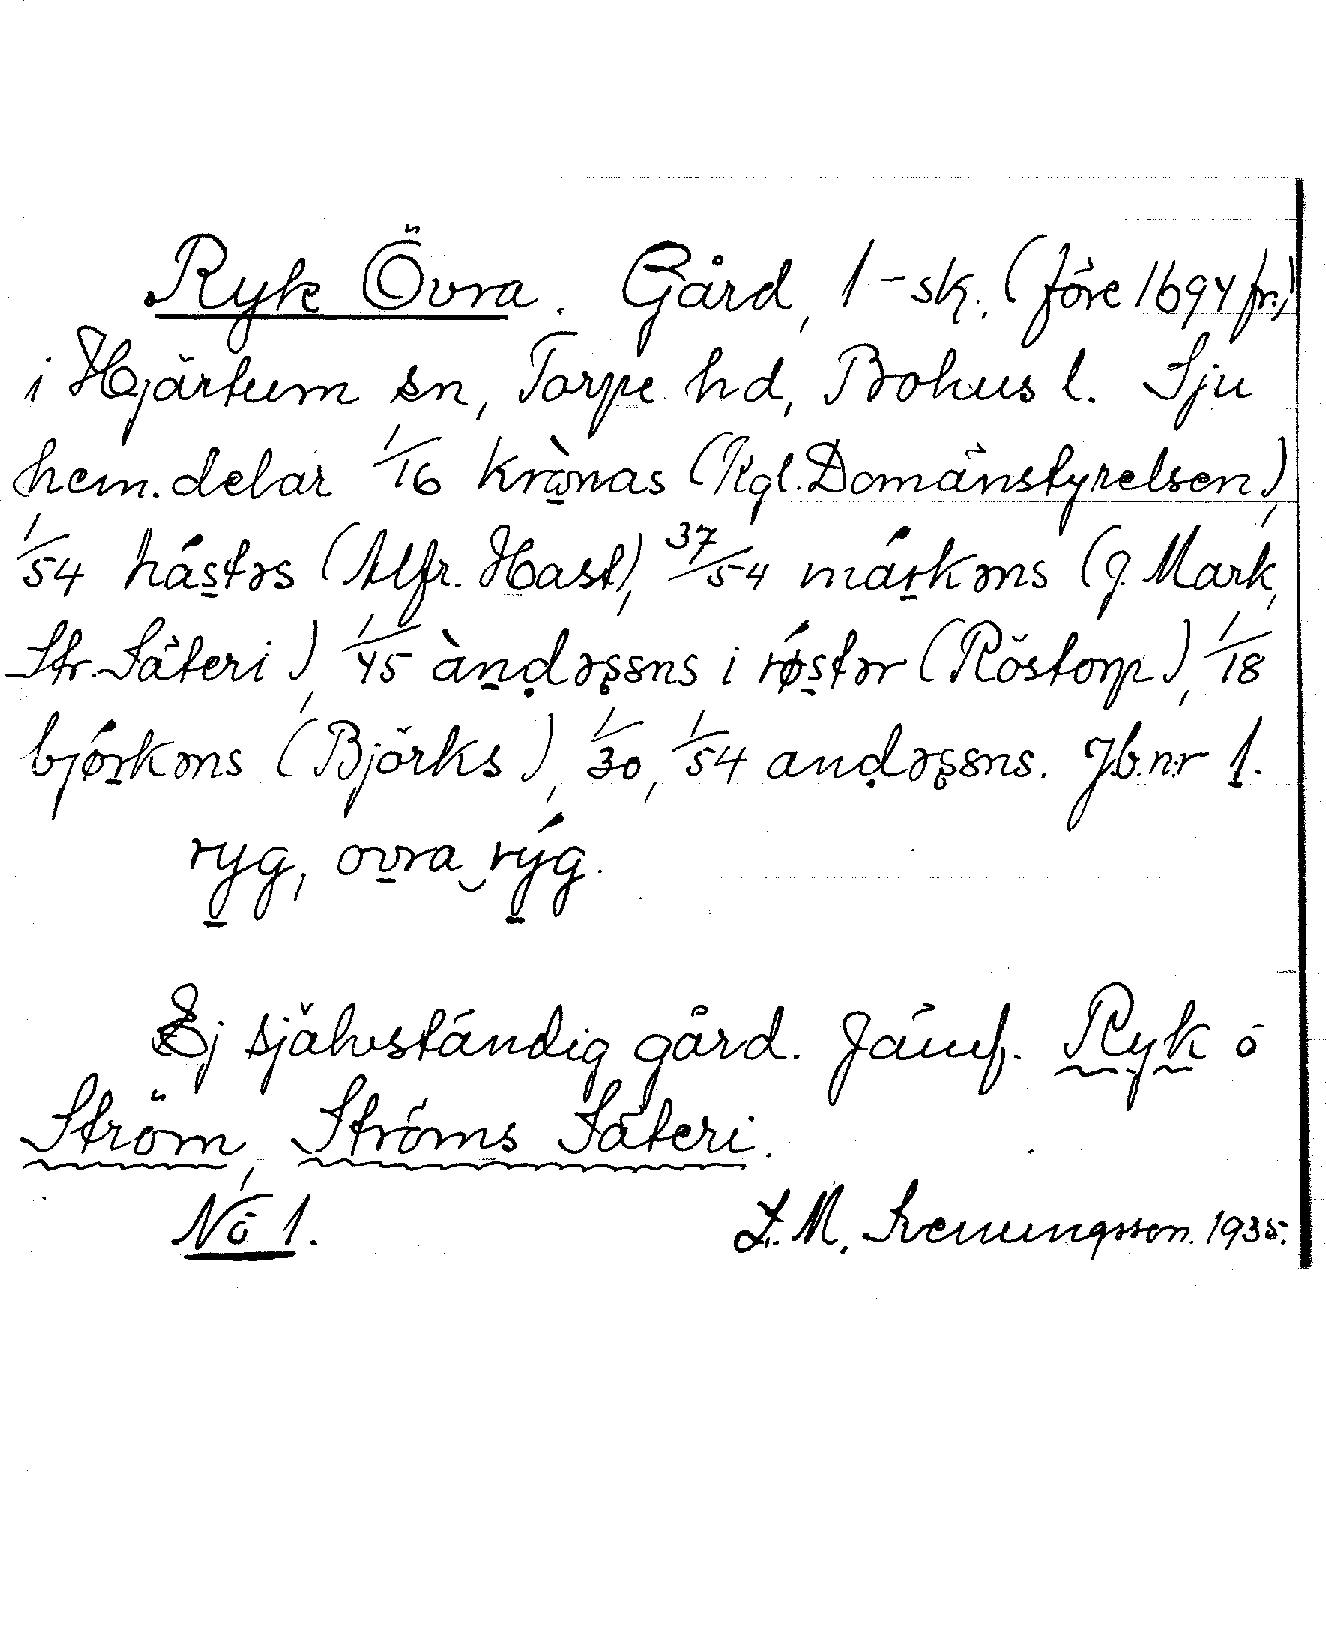 Ryk Övra. Gård, 1-sk. (före 1694 fr.)
i Hjärtum sn, Torpe hd, Bohus l. Sju
hem.delar 1/16 krò̱nas (Kgl. Domänstyrelsen),
1/54 hás̱təs (Alfr. Hast), 37/54 máṟkəns (J. Mark,
Str. Säteri), 1/45 àṉḍəṣsns i rǿs̱tər (Röstorp), 1/18
bjǿṟkəns (Björks), 1/30, 1/54 anḍəṣsns. Jb.nr 1.
ry̱g, ov̱ra‿rý̱g.
Ej självständig gård. Jämf. Ryk o
Ström, Ströms Säteri.
No 1. L. M. Svenungsson. 1935.